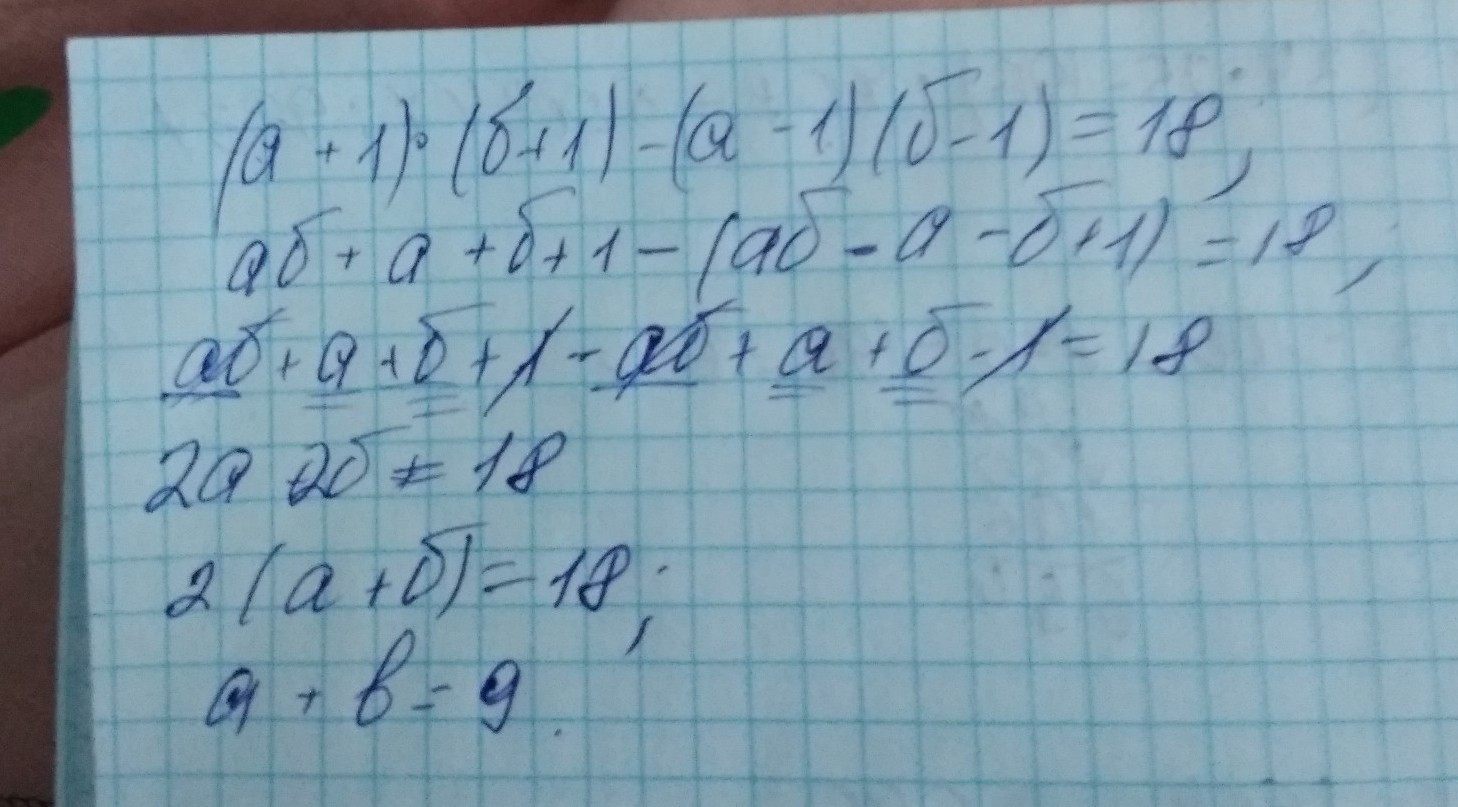 (а + 1)·(б+1) - (а - 1)(б - 1) = 18;
аб + а + б + 1 - (аб - а - б + 1) = 18;
аб + а + б + 1 - аб + а + б - 1 = 18
2а 2б = 18
2(а + б) = 18;
а + в = 9.